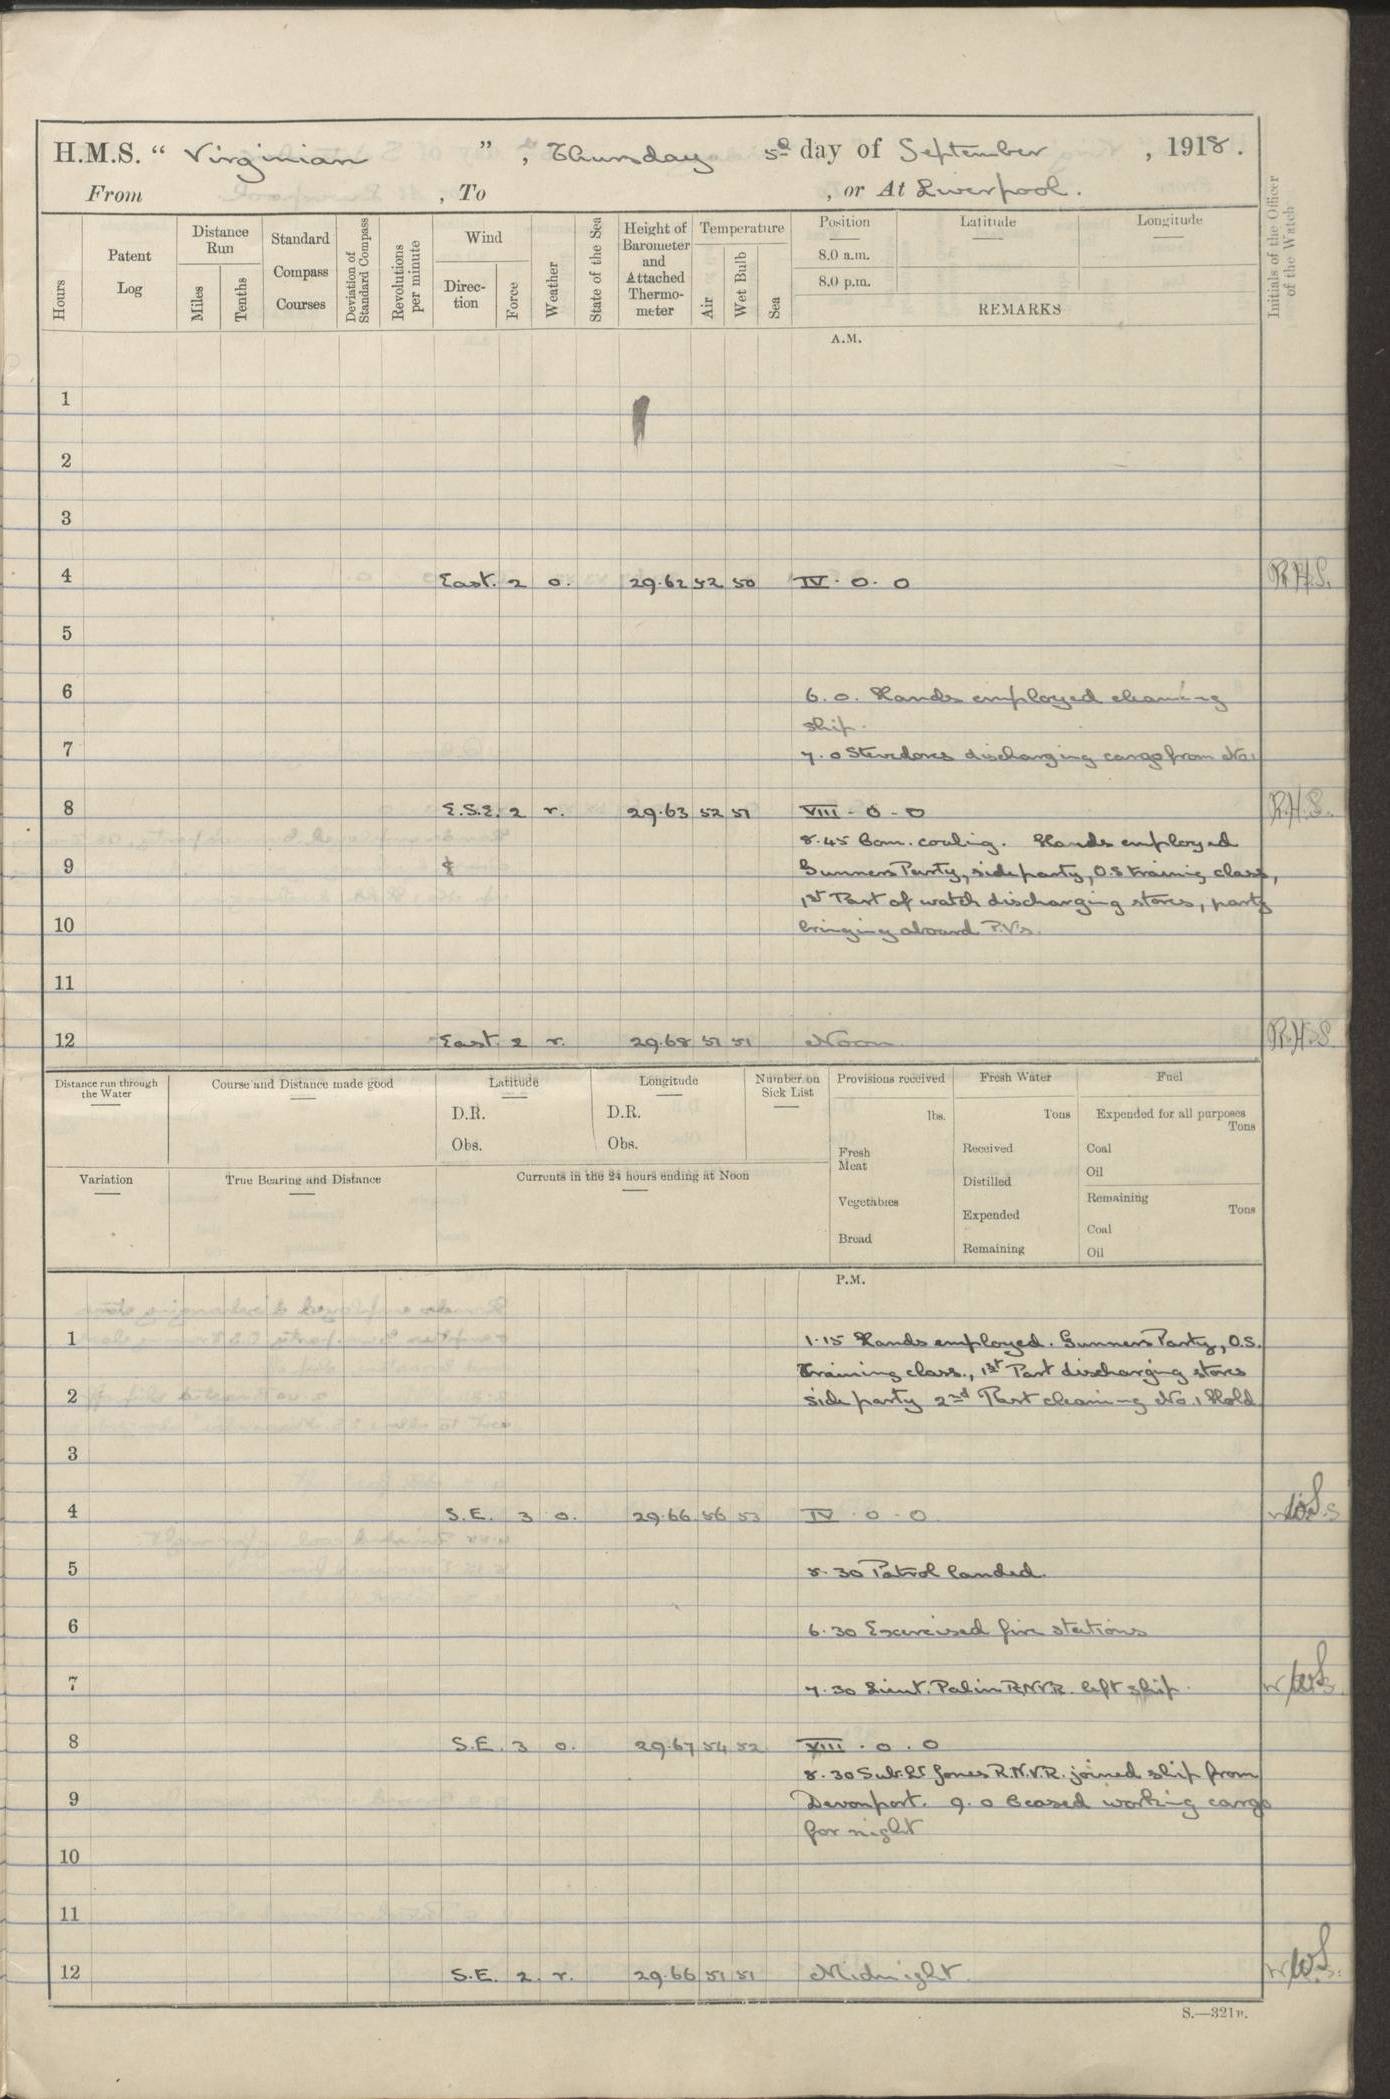 H.M.S. “ Virginian ” , Thursday 5th day of September , 1918 .
From , To , or At Liverpool .
Hours
Patent Log
Distance Run
Miles
Tenths
Standard Compass Courses
Deviation of Standard Compass
Revolutions per minute
Wind
Direc-tion
Force
Weather
State of the Sea
Height of Barometer and Attached Thermo-meter
Temperature
Air
Wet Bulb
Sea
Position
8.0 a.m.
8.0 p.m.
Latitude
Longitude
REMARKS
Initials of the Officer of the Watch
A.M.
1
2
3
4 East. 2 o. 29.62 52 50 IV . 0 . 0 R.H.S.
5
6 6.0. Hands employed cleaning
ship.
7 7.0 Stevedores discharging cargo from No.1
8 E.S.E. 2 r. 29.63 52 51 VIII . 0 . 0 R.H.S.
8.45 Com. coaling. Hands employed
9 Gunners Party, side party, O.S training class,
1st Part of watch discharging stores, party
10 bringing aboard P.V's.
11
12 East. 2 r. 29.68 51 51 Noon R.H.S.
Distance run through the Water
Course and Distance made good
Latitude
D.R.
Obs.
Longitude
D.R.
Obs.
Number on Sick List
Provisions received
lbs.
Fresh Meat
Vegetables
Bread
Fresh Water
Tons
Received
Distilled
Expended
Remaining
Fuel
Expended for all purposes
Tons
Coal
Oil
Remaining
Tons
Coal
Oil
Variation
True Bearing and Distance
Currents in the 24 hours ending at Noon
P.M.
1 1.15 Hands employed. Gunners Party, O.S.
Training class., 1st Part discharging stores
2 side party 2nd Part cleaning No.1 Hold
3
4 S.E. 3 o. 29.66 56 53 IV . 0 . 0
5 8.30 Patrol landed.
6 6.30 Exercised fire stations
7 7.30 Lieut. Palin R.N.V.R. left ship.
8 S.E. 3 o. 29.67 54 52 VIII . 0 . 0
8.30 Sub. Lt Jones R.N.V.R. joined ship from
9 Devonport. 9.0 Ceased working cargo
for night
10
11
12 S.E. 2. r. 29.66 51 51 Midnight
S.—321B.